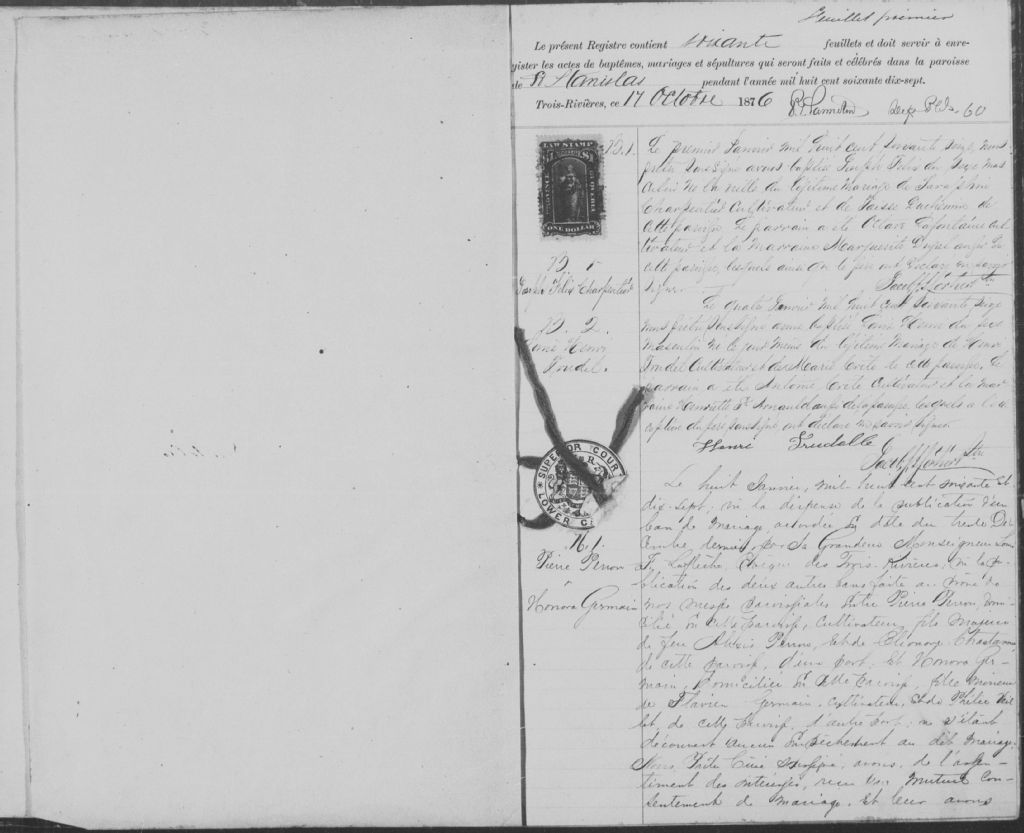 Feuillet premier
Le présent Registre contient soixante feuillets et doit servir à enre-
gister les actes de baptêmes, mariages et sépultures qui seront faits et célébrés dans la paroisse
de St Stanislas pendant l'année mil huit cent soixante dix-sept.
Trois-Rivières, ce 17 Octobre 1876 Dep P.C.S. 60
LAW STAMP
$1 $1
PROVINCE OF QUEBEC
ONE DOLLAR
B. 1.
Le premier Janvier mil huit cent soixante sept, nous
prêtre soussigné avons baptisé Joseph Félix du sexe mas
culin né la veille du légitime mariage de Séraphin
Charpentier Cultivateur et de Duchesne de
cette paroisse. Le parrain a été Octave Lafontaine cul
tivateur et la Marraine Marguerite Dupré aussi de
cette paroisse, lesquels ainsi que le père ont déclaré ne savoir
signer.
B 1
Joseph Félix Charpentier
B. 2.
Louis Henri
Trudel.
Le quatre Janvier mil huit cent soixante sept
nous prêtre soussigné avons baptisé Louis Henri du sexe
masculin né le jour même du légitime mariage de Henri
Trudel Cultivateur et de Marie Crête de cette paroisse. Le
parrain a été Antoine Crête Cultivateur et la mar
raine Henriette St Arnauld aussi de la paroisse, lesquels à l'ex
ception du père soussigné ont déclaré ne savoir signer
Henri Trudelle
SUPERIOR COURT
LOWER CA
V R
M. 1.
Pierre Perron
&
Honora Germain
Le huit Janvier, mil huit cent soixante et
dix-sept, vu la dispense de la publication d'un
ban de mariage accordée en date du trente Dé
cembre dernier, par Sa Grandeur Monseigneur Louis
F. Laflèche, Evêque des Trois-Rivières, vu la pu-
blication des deux autres bans faite au prône de
nos messes paroissiales entre Pierre Perron, domi-
cilié en cette paroisse, cultivateur, fils majeur
de feu Alexis Perron, et de Eléonore Chastenay
de cette paroisse, d'une part; et Honora Ger-
main, domiciliée en cette paroisse, fille mineure
de Flavien Germain, cultivateur, et de Philie
et de cette paroisse, d'autre part; ne s'étant
découvert aucun empêchement au dit mariage,
Nous, Prêtre Curé soussigné, avons, de l'assen-
timent des intéressés, reçu leur mutuel con-
sentement de mariage, et leur avons